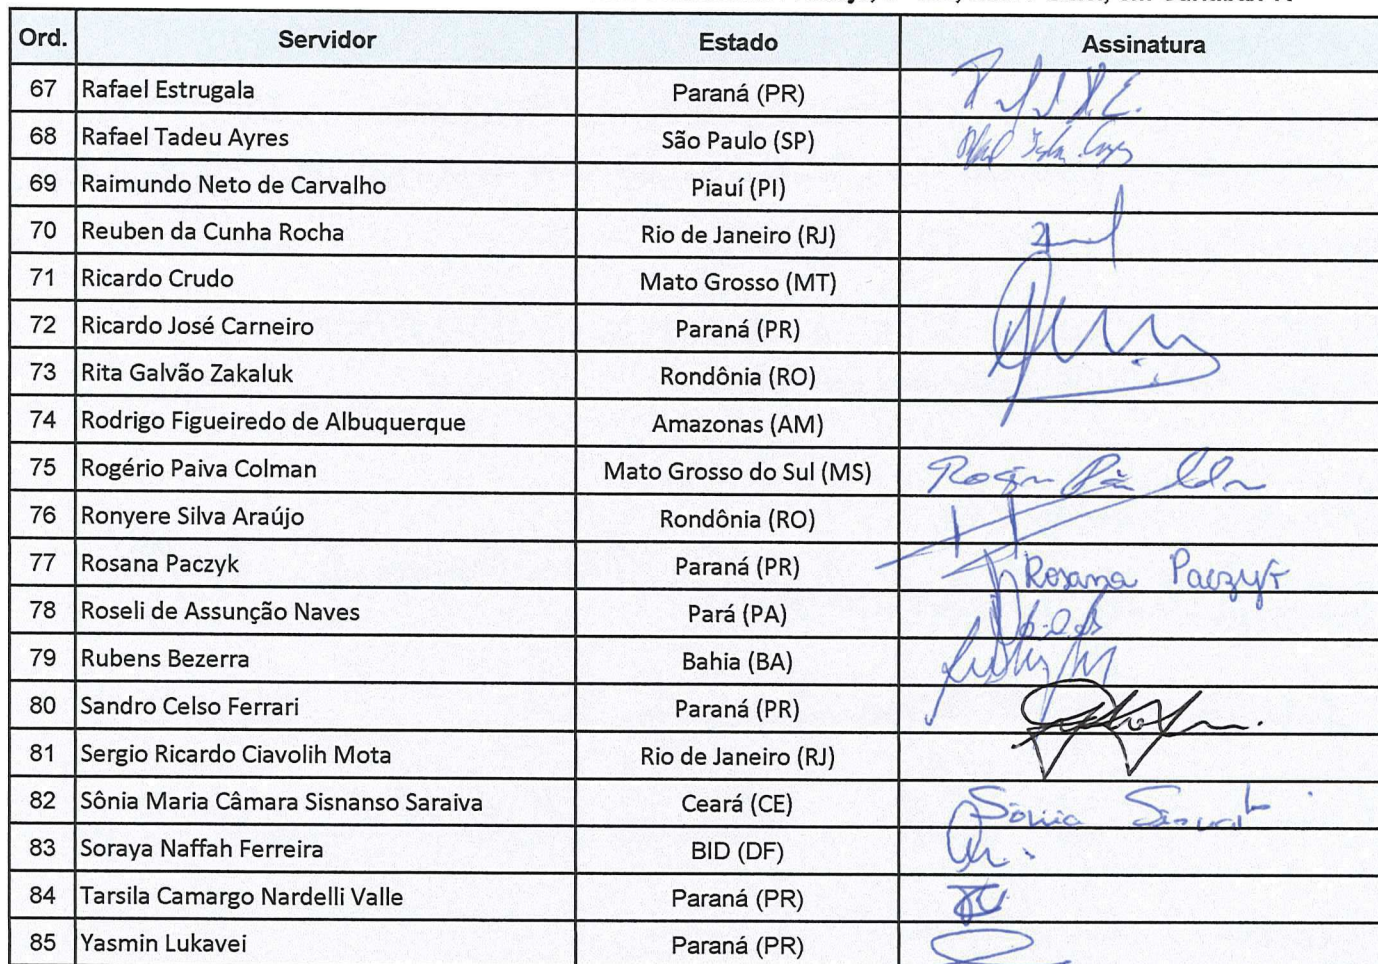 Ord. Servidor Estado Assinatura
67 Rafael Estrugala Paraná (PR)
68 Rafael Tadeu Ayres São Paulo (SP)
69 Raimundo Neto de Carvalho Piauí (PI)
70 Reuben da Cunha Rocha Rio de Janeiro (RJ)
71 Ricardo Crudo Mato Grosso (MT)
72 Ricardo José Carneiro Paraná (PR)
73 Rita Galvão Zakaluk Rondônia (RO)
74 Rodrigo Figueiredo de Albuquerque Amazonas (AM)
75 Rogério Paiva Colman Mato Grosso do Sul (MS)
76 Ronyere Silva Araújo Rondônia (RO)
77 Rosana Paczyk Paraná (PR) Rosana Paczyk
78 Roseli de Assunção Naves Pará (PA)
79 Rubens Bezerra Bahia (BA)
80 Sandro Celso Ferrari Paraná (PR)
81 Sergio Ricardo Ciavolih Mota Rio de Janeiro (RJ)
82 Sônia Maria Câmara Sisnanso Saraiva Ceará (CE) Sônia
83 Soraya Naffah Ferreira BID (DF)
84 Tarsila Camargo Nardelli Valle Paraná (PR)
85 Yasmin Lukavei Paraná (PR)